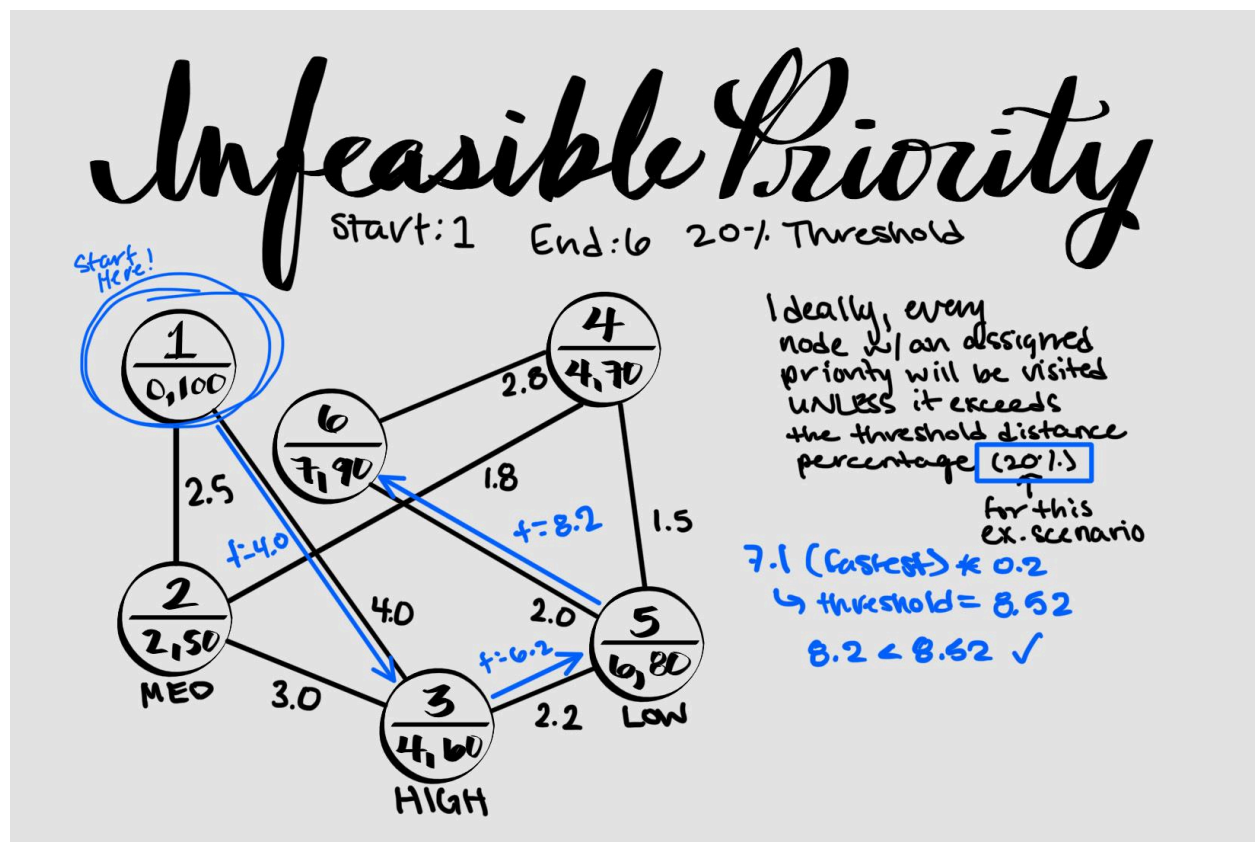 Infeasible Priority
Start: 1 End: 6 20% Threshold
Start
Here!
1
0,100
4
4,70
6
7,90
2
2,50
MED
3
4,60
HIGH
5
6,80
LOW
2.5
2.8
1.8
1.5
4.0
2.0
3.0
2.2
t=4.0
t=8.2
t=6.2
Ideally, every
node w/ an assigned
priority will be visited
UNLESS it exceeds
the threshold distance
percentage (20%)
for this
ex. scenario
7.1 (fastest) * 0.2
↳ threshold = 8.52
8.2 < 8.52 ✓